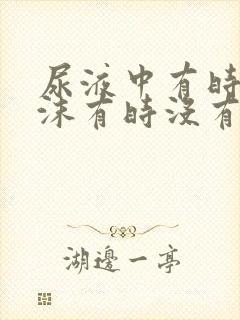 尿液中有時
沫有時沒有
湖邊一亭